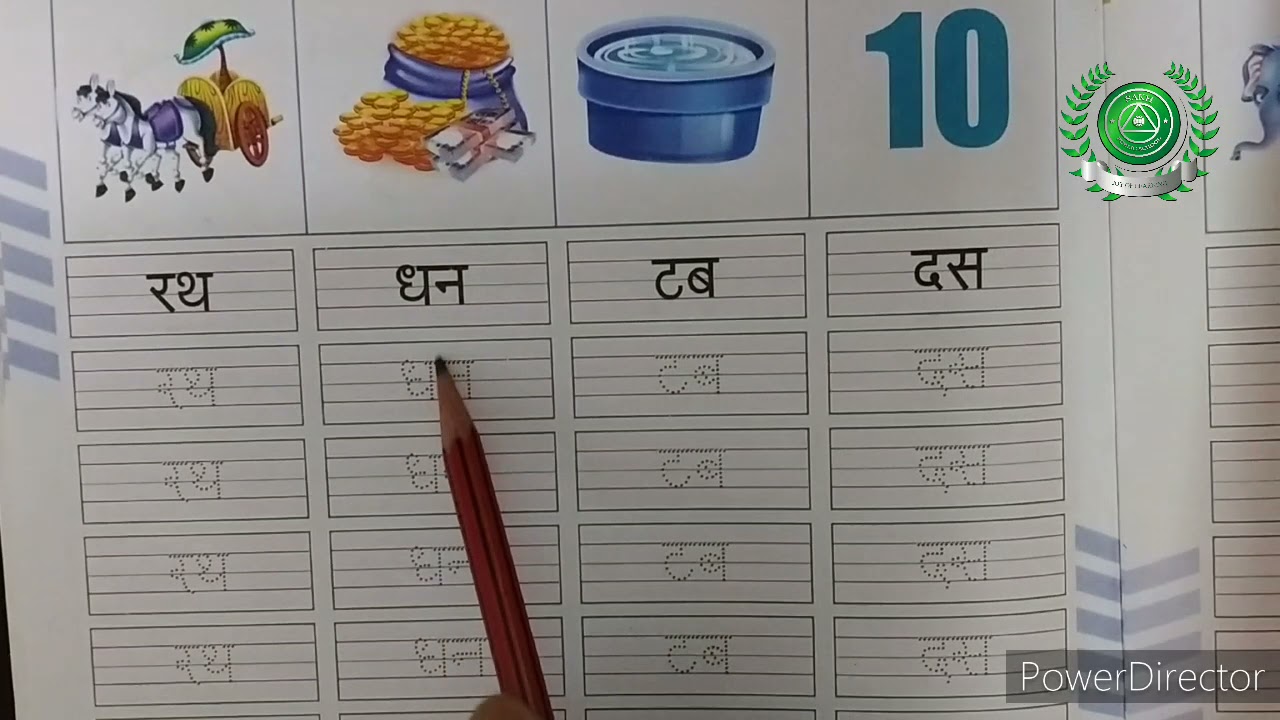 10
SAKH
JOY OF LEARNING
रथ धन टब दस
रथ धन टब दस
रथ धन टब दस
रथ धन टब दस
रथ धन टब दस
PowerDirector